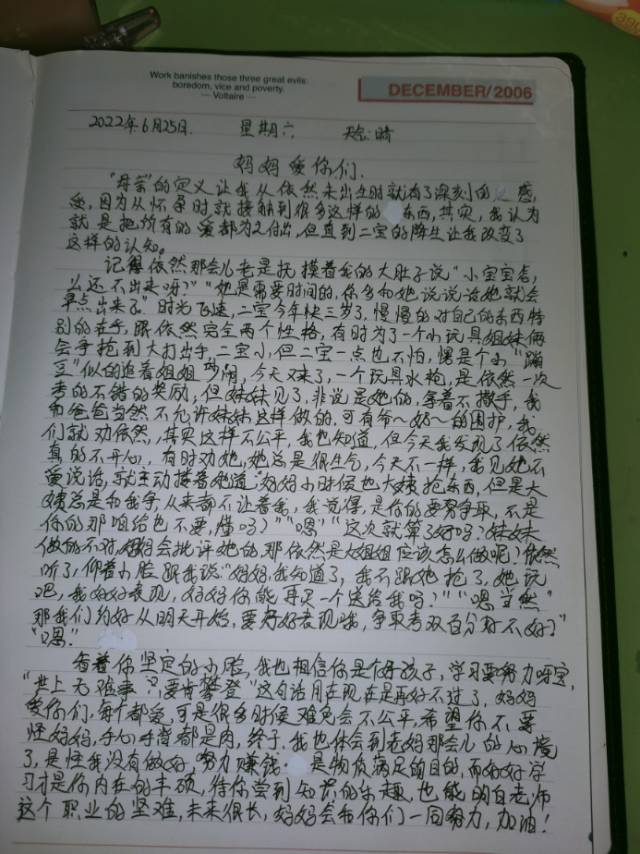 Work banishes those three great evils:
boredom, vice and poverty.
— Voltaire —
DECEMBER/2006
2022年6月25日. 星期六 天气:晴
妈妈爱你们.
"母亲"的定义让我从依然未出生时就有了深刻的 感
受,因为从怀孕时就接触到很多这样的 东西,其实,我认为
就是把所有的爱都为之付出,但直到二宝的降生让我改变了
这样的认知。
记得依然那会儿老是抚摸着我的大肚子说"小宝宝怎
么还不出来呀?""她是需要时间的,你多和她说说话她就会
早点出来了"时光飞速,二宝今年快三岁了,慢慢的对自己的东西特
别的在乎,跟依然完全两个性格,有时为了一个小玩具姐妹俩
会争抢到大打出手,二宝小,但二宝一点也不怕,愣是个小"蹦
豆"似的追着姐姐 闹,今天又来了,一个玩具水枪,是依然一次
考的不错的奖励,但妹妹见了,非说是她的,拿着不撒手,我
和爸爸当然不允许妹妹这样做的.可有爷~奶~的围护,我
们就劝依然,其实这样不公平,我也知道,但今天我发现了依然
真的不开心,有时劝她,她总是很生气,今天不一样,我见她不
爱说话,就主动搂着她道:"妈妈小时候也大姨抢东西,但是大
姨总是和我争,从来都不让着我,我觉得,是你的要努力争取,不是
你的那咱给也不要,懂吗?""嗯""这次就算了好吗?妹妹
做的不对,妈妈会批评她的,那依然是大姐姐应该怎么做呢?依然
听了,仰着小脸跟我说:"妈妈,我知道了,我不跟她抢了,她玩
吧,我好好表现,妈妈你能再买一个送给我吗?""嗯当然"
那我们约好从明天开始,要好好表现哦,争取考双百分好不好?"
"嗯."
看着你坚定的小脸,我也相信你是个好孩子,学习要努力呀宝,
"世上无难事,只要肯攀登"这句话用在现在是再好不过了,妈妈
爱你们,每个都爱,可是很多时候难免会不公平,希望你不要
怪妈妈,手心手背都是肉,终于,我也体会到老妈那会儿的心境
了,是怪我没有做好,努力赚钱 是物质满足的目的,而好好学
习才是你内在的丰硕,待你尝到知识的乐趣,也能明白老师
这个职业的坚难,未来很长,妈妈会和你们一同努力,加油!